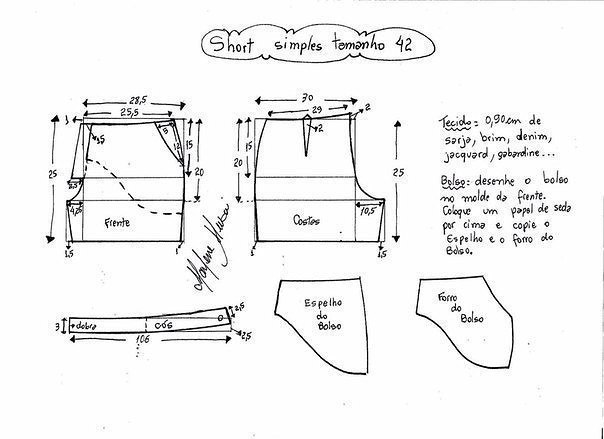 Short simples tamanho 42
28,5
25,5
1
3,5
5
12
15
20
25
5,5
4,5
Frente
1,5
1
30
29
2
2
15
20
25
Costas
10,5
1,5
Tecido= 0,90cm de
sarja, brim, denim,
jacquard, gabardine...
Bolso: desenhe o bolso
no molde da frente.
Coloque um papel de seda
por cima e copie o
Espelho e o forro do
Bolso.
3
dobra
cós
2,5
2,5
106
Espelho
do
Bolso
Forro
do
Bolso